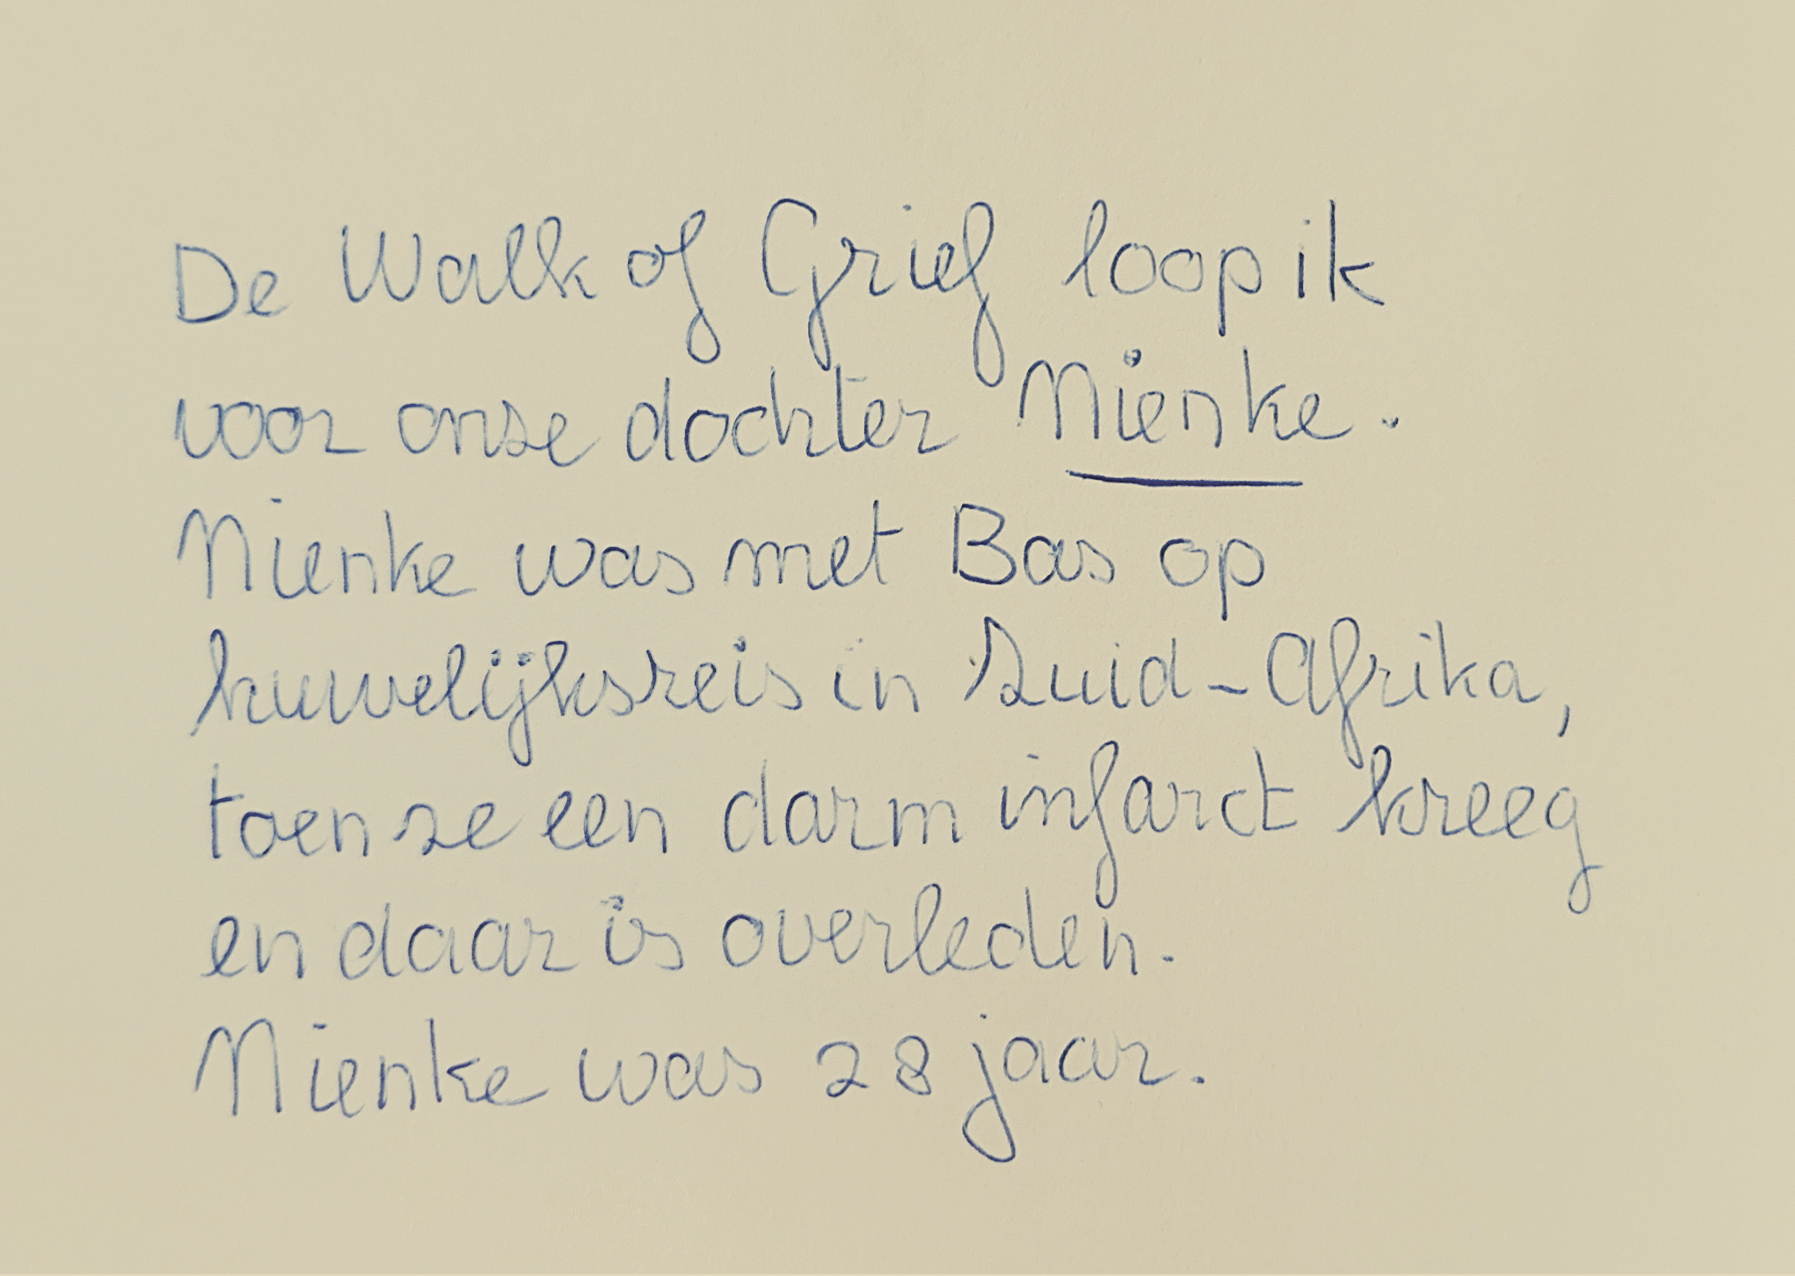 De Walk of Grief loop ik
voor onze dochter Nienke.
Nienke was met Bas op
huwelijksreis in Zuid-Afrika,
toen ze een darm infarct kreeg
en daar is overleden.
Nienke was 28 jaar.